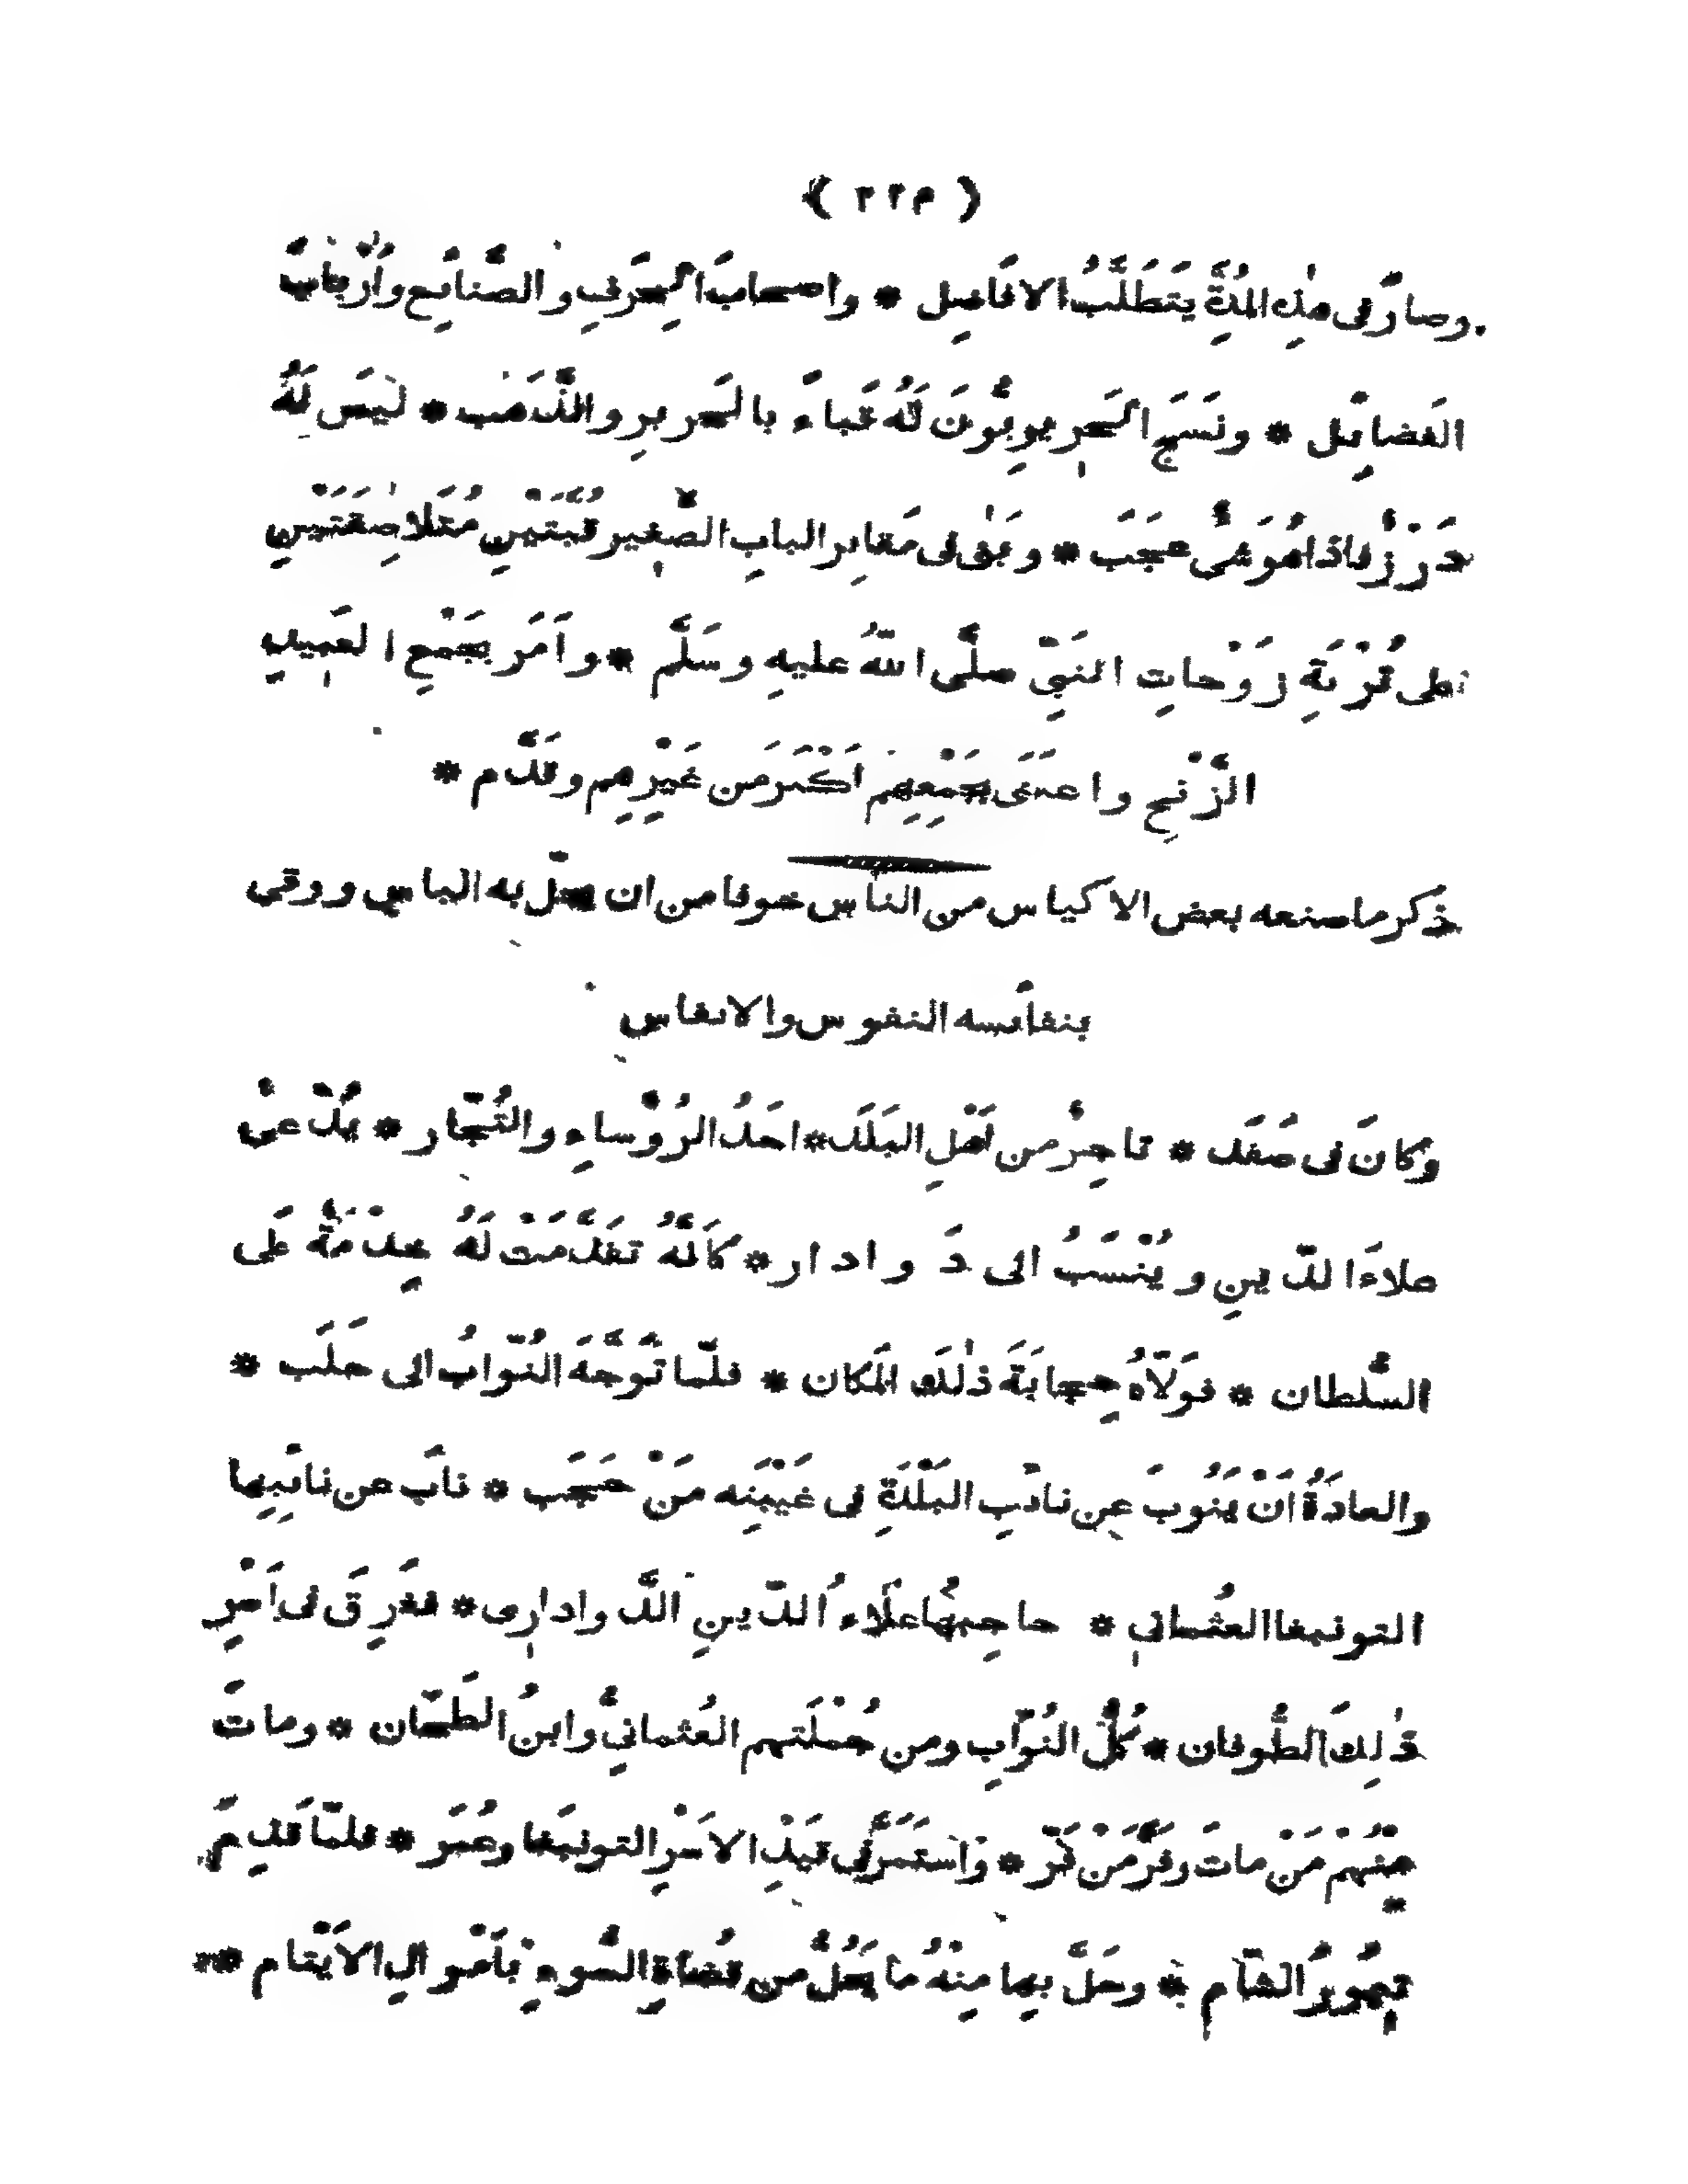 ( ٢٢٣ )
وصارَ في هٰذِهِ المُدَّةِ يَتَطَلَّبُ الافاضِل * واصحابَ الحِرَفِ والصَّنائِعِ وأَرْبابَ
الفَضائِل * ونَسَجَ الحَرِيرِيُّونَ لَهُ قَباءً بالحَرِيرِ والذَّهَب * لَيْسَ لَهُ
دَرْزٌ فاذا هُوَ شَيْءٌ عَجَب * وبَنٰى في مَقابِرِ البابِ الصَّغِيرِ قُبَّتَيْنِ مُتَلاصِقَتَيْنِ
على تُرْبَةِ زَوْجاتِ النَبِيِّ صلَّى اللّٰهُ عليهِ وسَلَّم * واَمَرَ بجَمْعِ العَبِيدِ
الزَّنْجِ واعتَنَى بجَمْعِهِمْ اَكْثَرَ مِن غَيْرِهِم وقَدَّم *
ذكر ما صنعه بعض الاكياس من الناس خوفا من ان يحلّ به الباس ووقى
بنفائسه النفوس والانفاس
وكانَ في صَفَد * تاجِرٌ من اَهْلِ البَلَد * احَدُ الرُؤَساءِ والتُجّار * يُدْعى
علاءَ الدّينِ ويُنْسَبُ الى دَوادار * كَأَنَّهُ تَقَدَّمَتْ لَهُ خِدْمَةٌ على
السُّلْطان * فوَلّاهُ حِجابَةَ ذٰلكَ المَكان * فلَمّا تَوَجَّهَ النُوّابُ الى حَلَب *
والعادَةُ اَنْ يَنُوبَ عن نائِبِ البَلْدَةِ في غَيْبَتِه مَنْ حَجَب * نابَ عن نائِبِها
التونبغا العُثماني * حاجِبُها علاءُ الدّينِ الدَّواداري * فغَرِقَ في اَمْرِ
ذٰلِكَ الطُّوفان * كُلُّ النُوّابِ ومن جُمْلَتِهم العُثمانيُّ وابنُ الطَحّان * وماتَ
مِنْهُمْ مَنْ ماتَ وفَرَّ مَنْ فَرّ * واسْتَمَرَّ في قَيْدِ الاَسْرِ التونبَغا وعُمَر * فلَمّا قَدِمَ
تِيمُورُ الشّام * وحَلَّ بها مِنْهُ ما يَحُلُّ من قُضاةِ السُّوءِ بأَمْوالِ الاَيْتام *